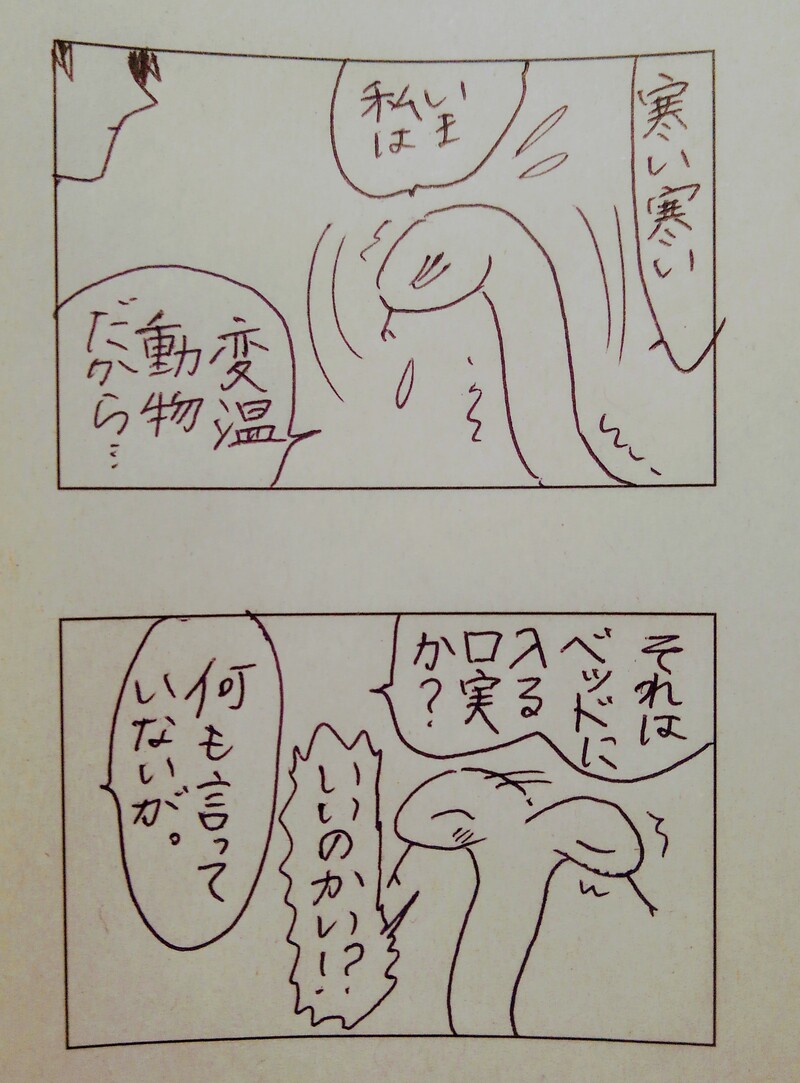 寒い寒い
いま
私は
変温
動物
だから…
それは
ベッドに
入る
口実
か?
いいのかい!?
何も言って
いないが。